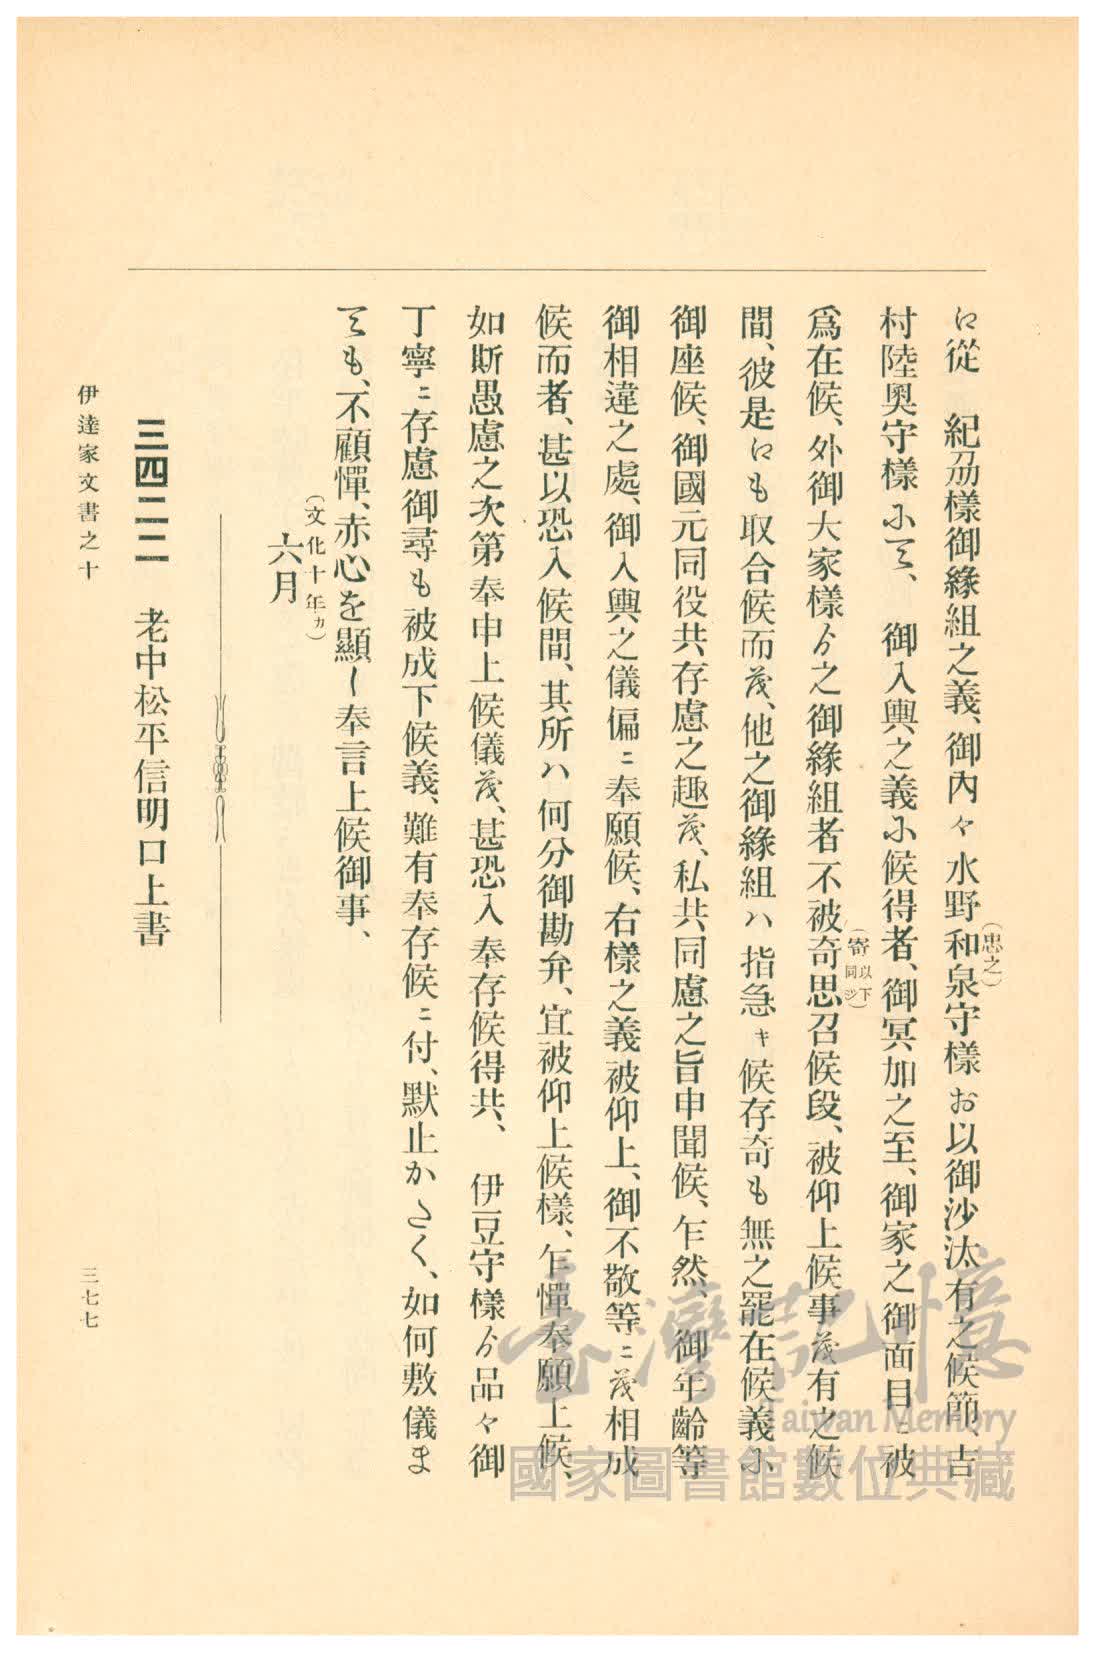 江從　紀刕樣御緣組之義、御內々水野和泉守樣お以御沙汰有之候節、吉
(忠之)
村陸奥守樣ニ而、　御入輿之義ニ候得者、御冥加之至、御家之御面目ニ被
爲在候、外御大家樣ゟ之御緣組者不被奇思召候段、被仰上候事茂有之候
(寄以下同シ)
間、彼是江も取合候而茂、他之御緣組ハ指急キ候存奇も無之罷在候義ニ
御座候、御國元同役共存慮之趣茂、私共同慮之旨申聞候、乍然、御年齡等
御相違之處、御入輿之儀偏ニ奉願候、右樣之義被仰上、御不敬等ニ茂相成
候而者、甚以恐入候間、其所ハ何分御勘弁、宜被仰上候樣、乍憚奉願上候、
如斯愚慮之次第奉申上候儀茂、甚恐入奉存候得共、　伊豆守樣ゟ品々御
丁寧ニ存慮御尋も被成下候義、難有奉存候ニ付、默止かたく、如何敷儀ま
ても、不顧憚、赤心を顯し奉言上候御事、
(文化十年カ)
六月
三四二二　老中松平信明口上書
伊達家文書之十
三七七
臺灣記憶
Taiwan Memory
國家圖書館數位典藏